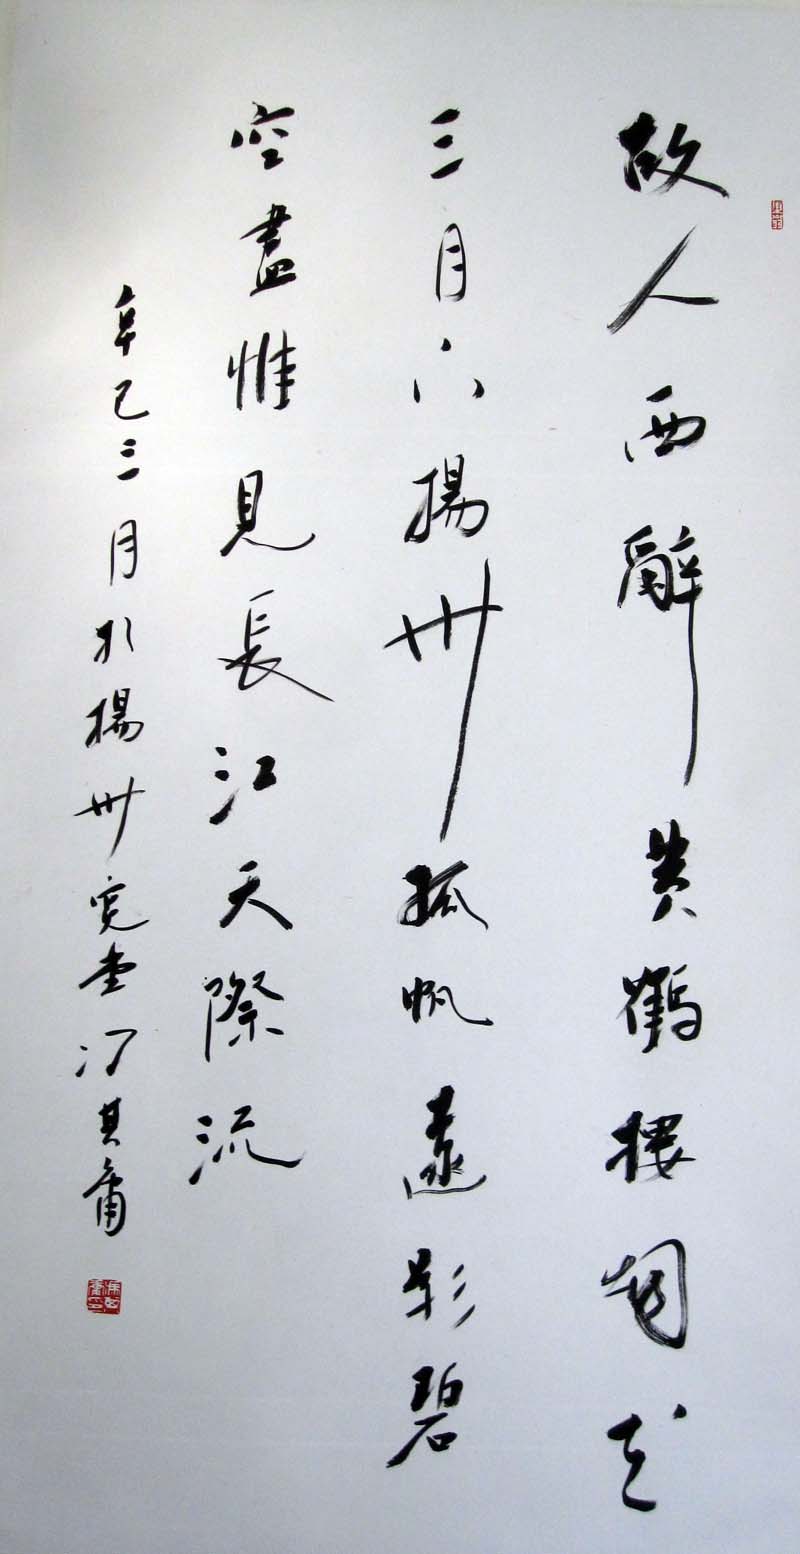 故人西辭黃鶴樓烟花
三月下揚州孤帆遠影碧
空盡惟見長江天際流
辛巳三月於揚州寬堂馮其庸